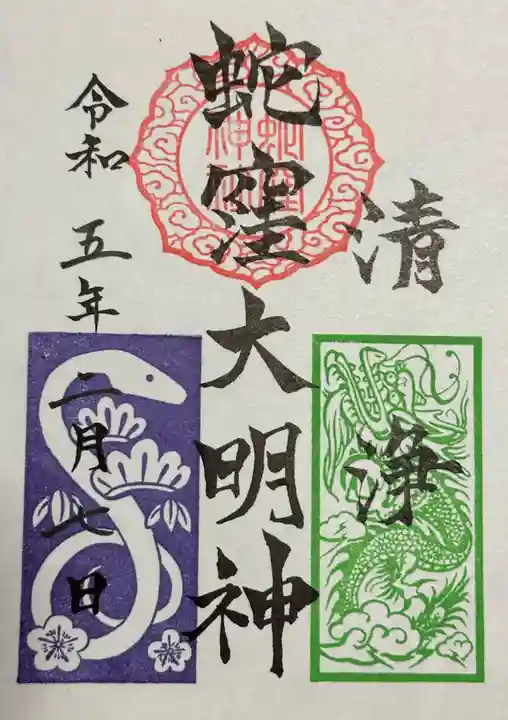 清浄
蛇窪大明神
令和五年二月七日
蛇窪
神社